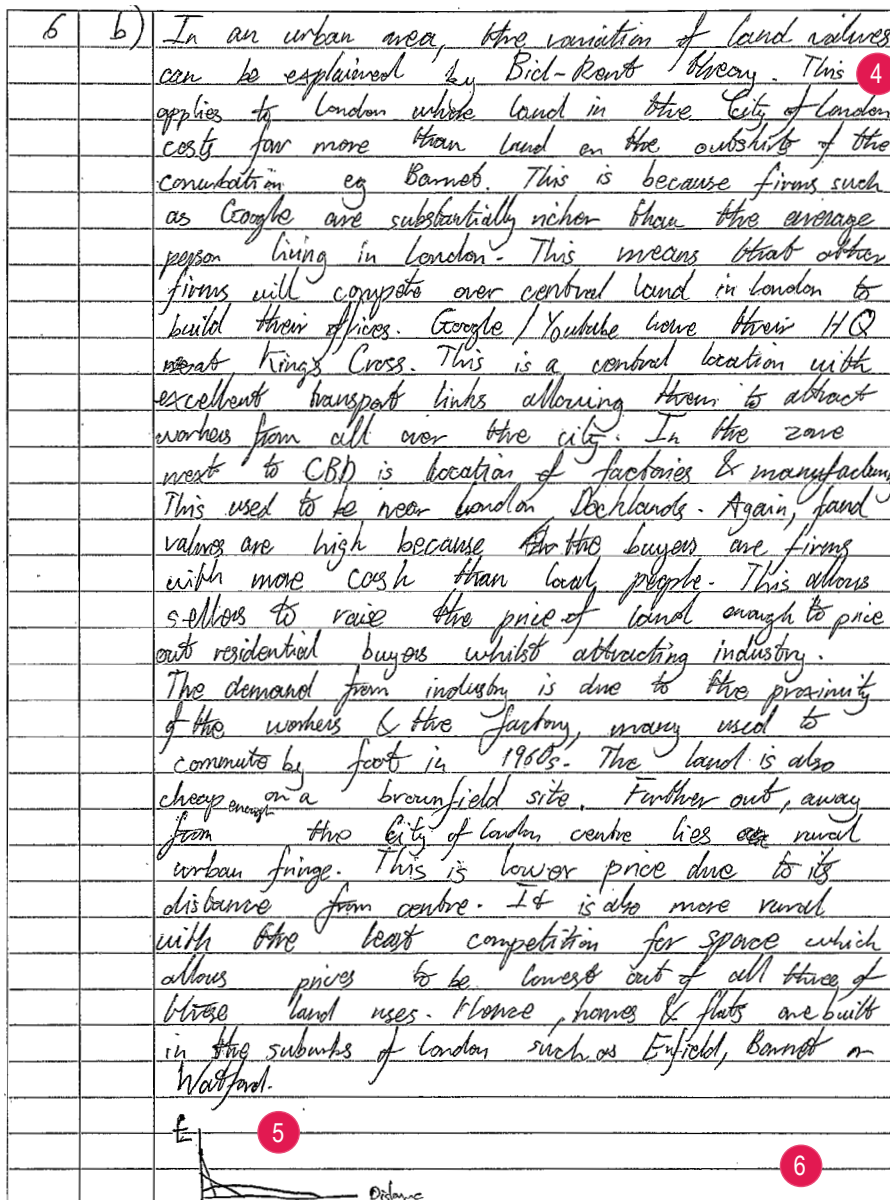 6 b) In an urban area, the variation of land values
can be explained by Bid-Rent theory. This 4
applies to London where land in the City of London
costs far more than land on the outskirts of the
conurbation eg Barnet. This is because firms such
as Google are substantially richer than the average
person living in London. This means that other
firms will compete over central land in London to
build their offices. Google / Youtube have their HQ
at King's Cross. This is a central location with
excellent transport links allowing them to attract
workers from all over the city. In the zone
next to CBD is location of factories & manufacturing
This used to be near London Docklands. Again, land
values are high because the buyers are firms
with more cash than local people. This allows
sellers to raise the price of land enough to price
out residential buyers whilst attracting industry.
The demand from industry is due to the proximity
of the workers & the factory, many used to
commute by foot in 1960s. The land is also
cheap enough on a brownfield site. Further out, away
from the City of London centre lies rural
urban fringe. This is lower price due to its
distance from centre. It is also more rural
with the least competition for space which
allows prices to be lowest out of all three of
these land uses. Hence, homes & flats are built
in the suburbs of London such as Enfield, Barnet or
Watford.
£ 5
6
Distance